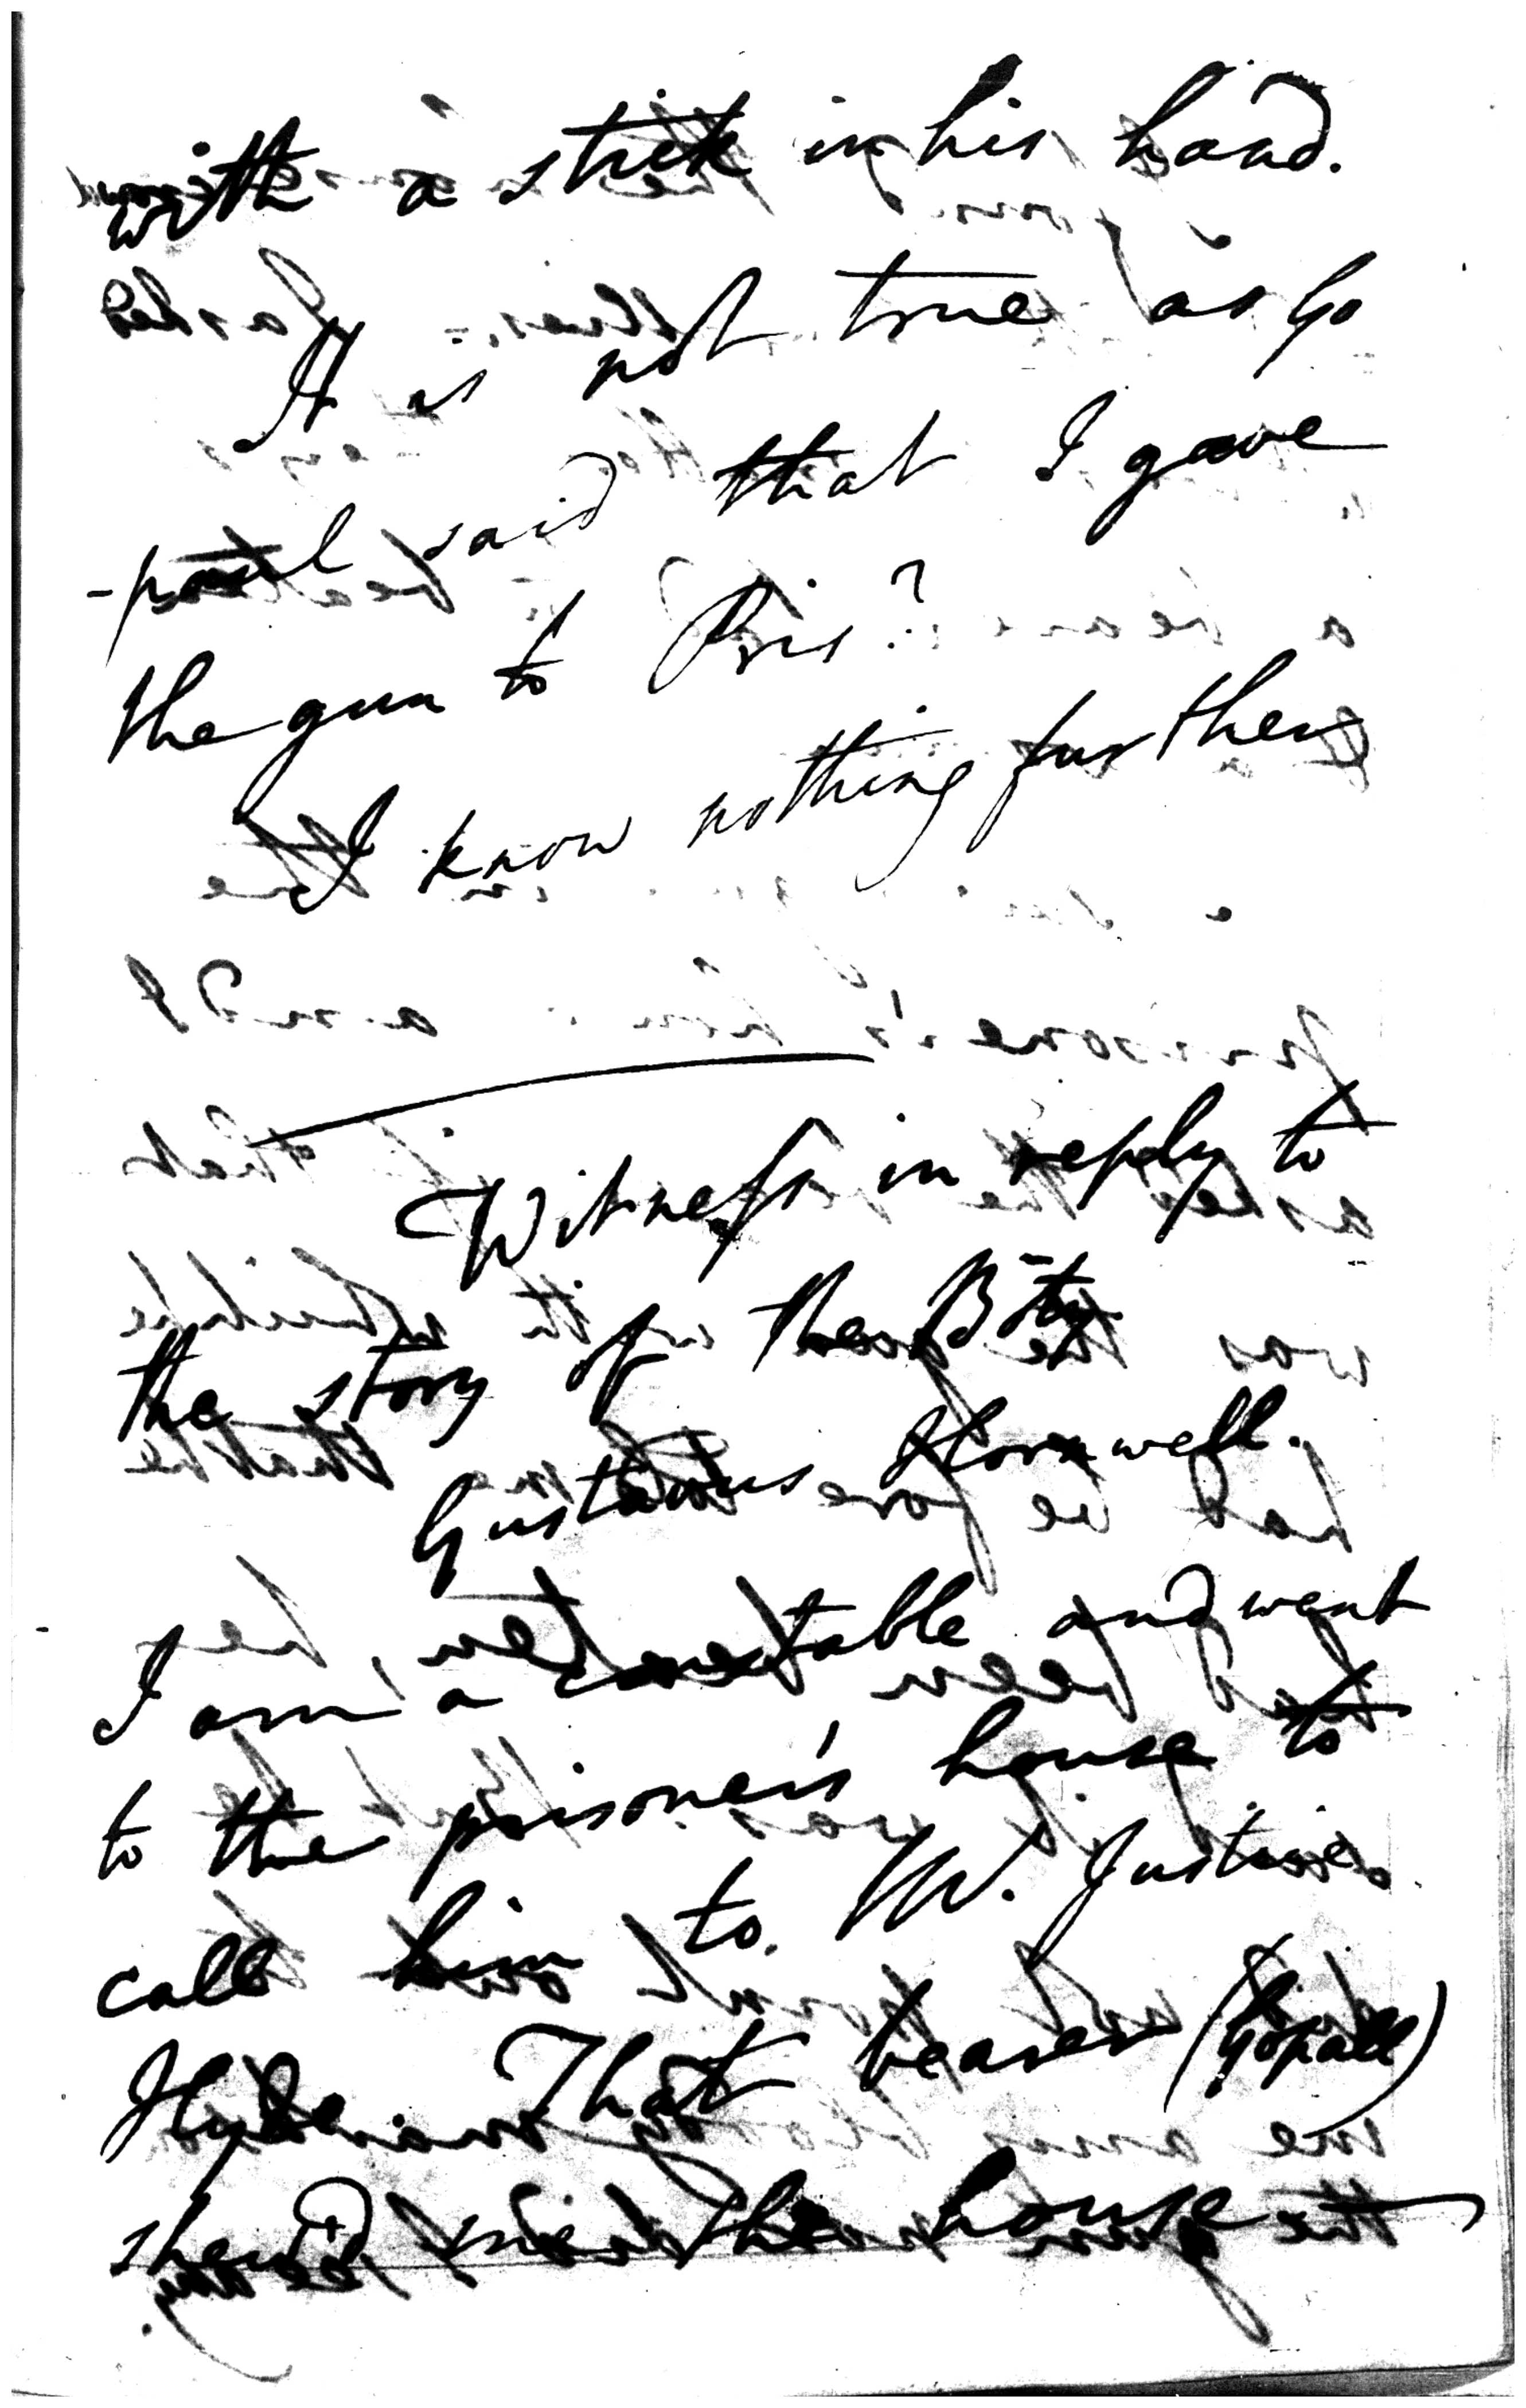 with a stick in his hand.
It is not true as Go
-paul said that I gave
the gun to Pris?
I know nothing further
Witness in reply to
the story of the Boy
Gustavus Hornwell.
I am a constable and went
to the prisoner's house to
call him to M. Justice
Hyde. That bearer (Gopall)
shew'd me the house